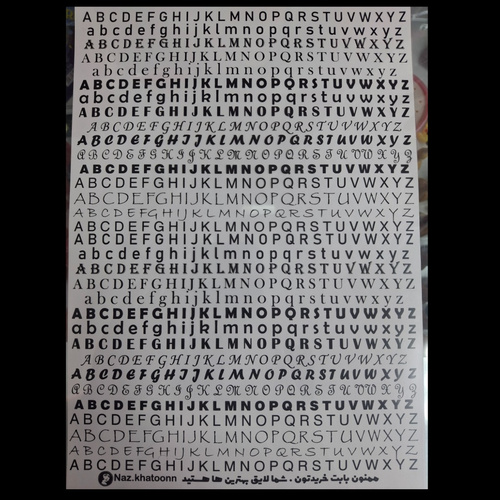 ABCDEFGHIJKLMNOPQRSTUVWXYZ
abcdefghijklmnopqrstuvwxyz
ABCDEFGHIJKLMNOPQRSTUVWXYZ
ABCDEFGHIJKLMNOPQRSTUVWXYZ
abcdefghijklmnopqrstuvwxyz
ABCDEFGHIJKLMNOPQRSTUVWXYZ
abcdefghijklmnopqrstuvwxyz
ABCDEFGHIJKLMNOPQRSTUVWXYZ
ABCDEFGHIJKLMNOPQRSTUVWXYZ
ABCDEFGHIJKLMNOPQRSTUVWXYZ
ABCDEFGHIJKLMNOPQRSTUVWXYZ
ABCDEFGHIJKLMNOPQRSTUVWXYZ
ABCDEFGHIJKLMNOPQRSTUVWXYZ
ABCDEFGHIJKLMNOPQRSTUVWXYZ
ABCDEFGHIJKLMNOPQRSTUVWXYZ
ABCDEFGHIJKLMNOPQRSTUVWXYZ
ABCDEFGHIJKLMNOPQRSTUVWXYZ
abcdefghijklmnopqrstuvwxyz
ABCDEFGHIJKLMNOPQRSTUVWXYZ
ABCDEFGHIJKLMNOPQRSTUVWXYZ
abcdefghijklmnopqrstuvwxyz
ABCDEFGHIJKLMNOPQRSTUVWXYZ
abcdefghijklmnopqrstuvwxyz
ABCDEFGHIJKLMNOPQRSTUVWXYZ
ABCDEFGHIJKLMNOPQRSTUVWXYZ
ABCDEFGHIJKLMNOPQRSTUVWXYZ
ABCDEFGHIJKLMNOPQRSTUVWXYZ
ABCDEFGHIJKLMNOPQRSTUVWXYZ
ABCDEFGHIJKLMNOPQRSTUVWXYZ
ABCDEFGHIJKLMNOPQRSTUVWXYZ
ABCDEFGHIJKLMNOPQRSTUVWXYZ
ABCDEFGHIJKLMNOPQRSTUVWXYZ
ممنون بابت خریدتون . شما لایق بهترین ها هستید Naz.khatoonn